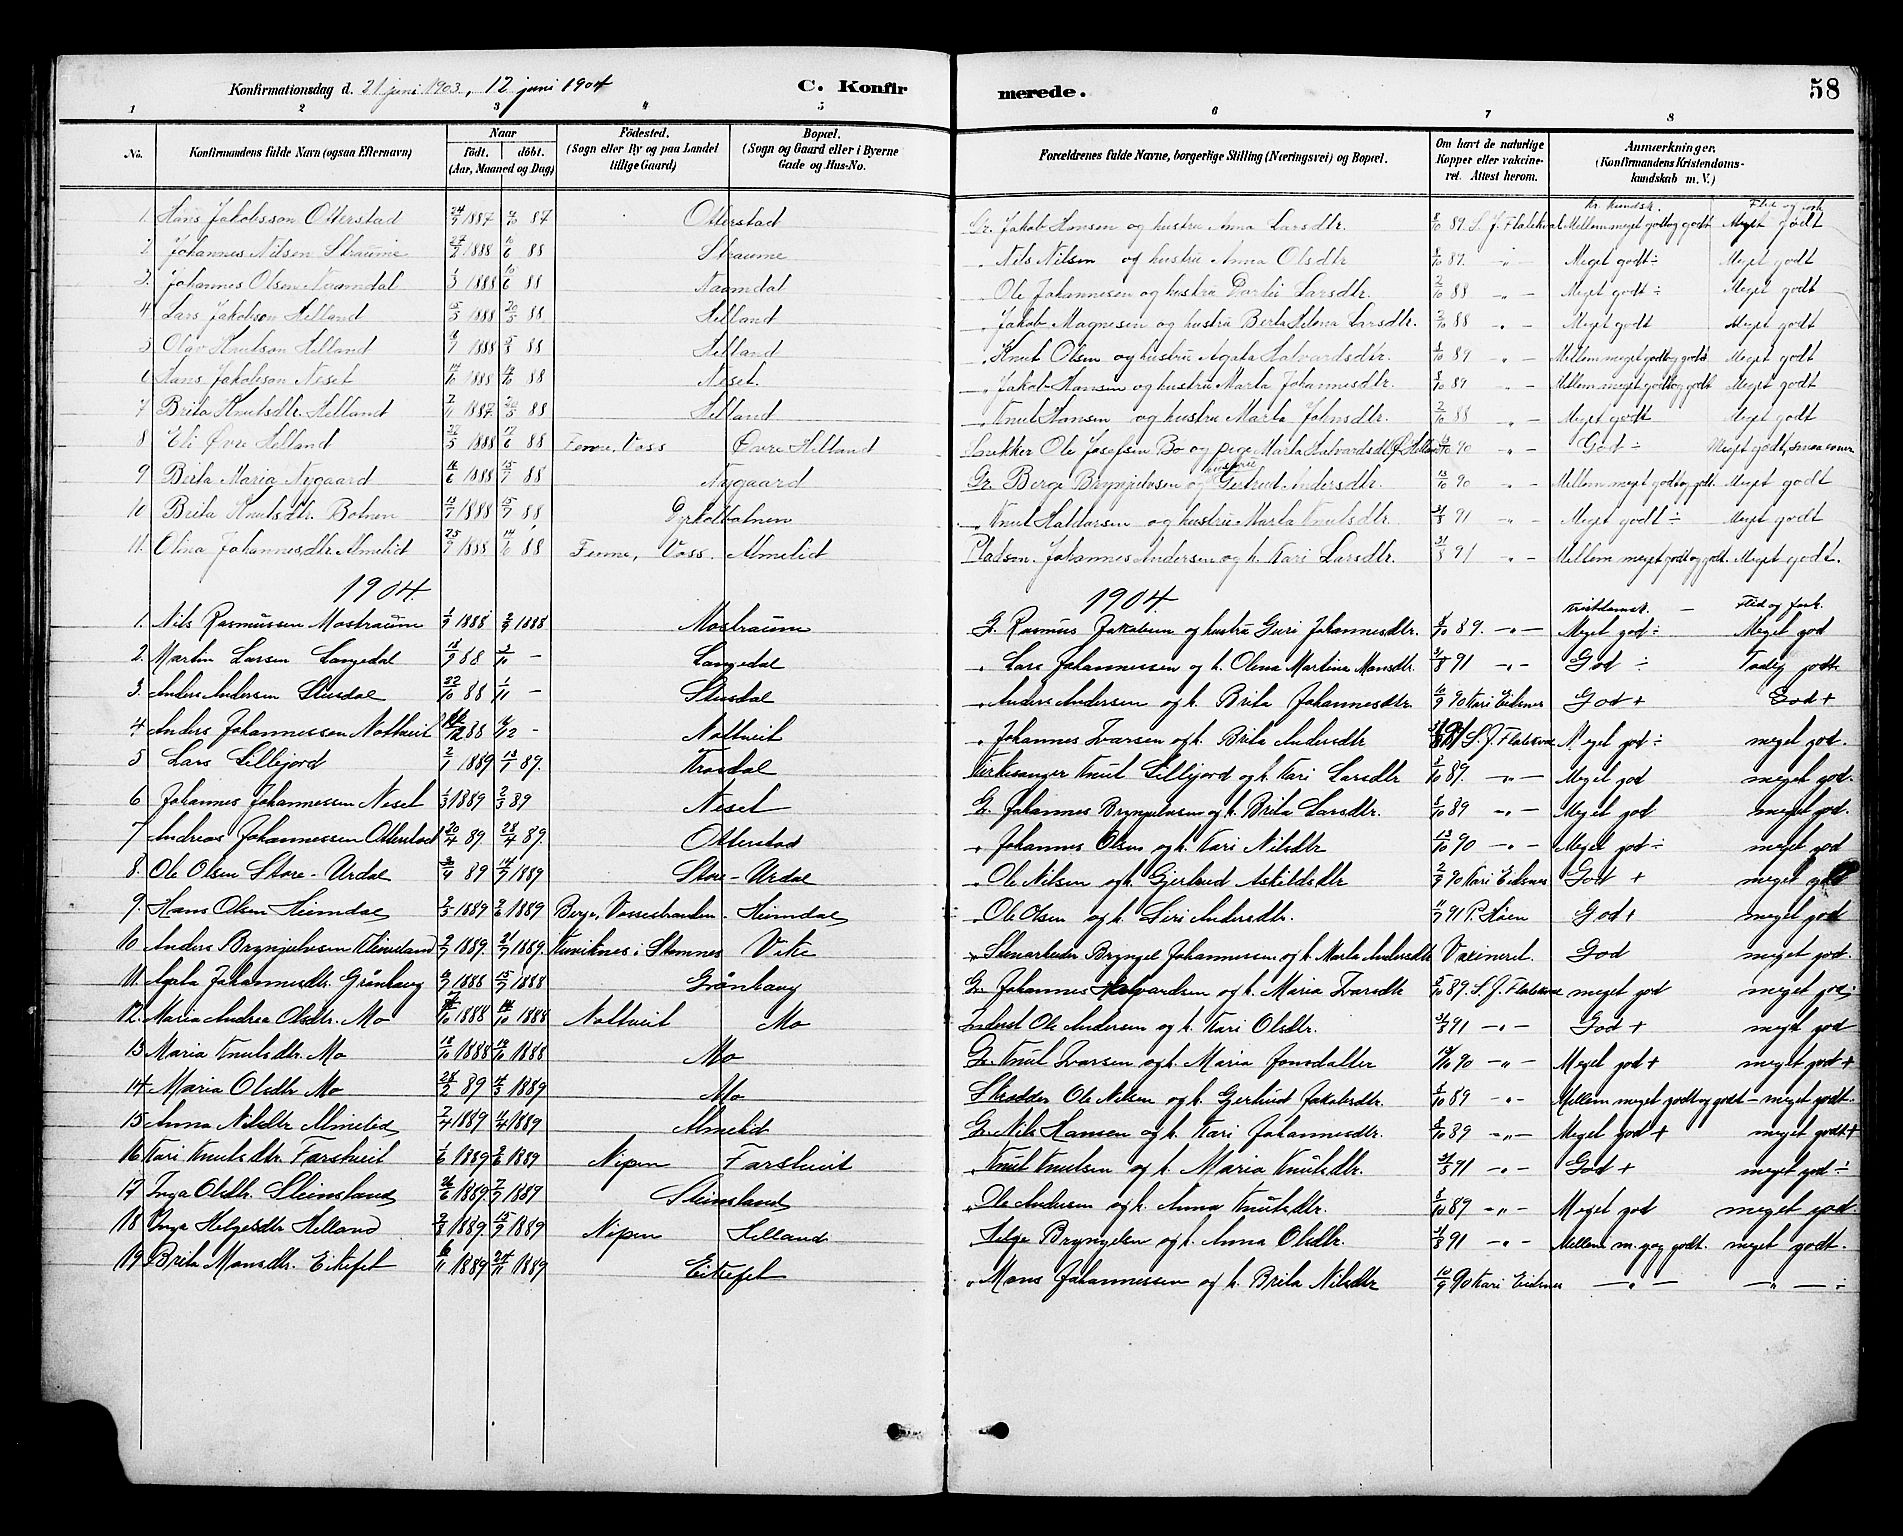 58
Konfirmationsdag d. 21 juni 1903, 12 juni 1904 C. Konfirmerede.
1 2 3 4 5 6 7 8
No. Konfirmandens fulde Navn (ogsaa Efternavn) Naar født. døbt. (Aar, Maaned og Dag) Fødested. (Sogn eller By og paa Landet tillige Gaard) Bopæl. (Sogn og Gaard eller i Byerne Gade og Hus-No. Forældrenes fulde Navne, borgerlige Stilling (Næringsvei) og Bopæl. Om havt de naturlige Kopper eller vakcineret. Attest herom. Anmærkninger. (Konfirmandens Kristendomskundskab m. V.)
Kr. kundsk. Flid og
1. Hans Jakobsson Otterstad 24/7 1887 87 Otterstad Gr. Jakob Hansen og hustru Anna Larsdtr. 8/10 89. S. J. Flatekval Mellem meget godt og godt Meget godt
2. Johannes Nilsen Straume 1888 88 Straume " Nils Nilsen og hustru Anna Olsdtr 87. " Meget godt ÷ Meget godt
3. Johannes Olsen Naamdal 1/3 1888 88 Naamdal " Ole Johannesen og hustru Dortei Larsdtr. 2/10 88 - " - Meget godt ÷ Meget godt
4 Lars Jakobson Helland 15/5 1888 20/5 88 Helland " Jakob Magnesen og hustru Berta Helena Larsdtr. 2/10 88 - " - Meget godt Meget godt
5 Olav Knutson Helland 1888 88 Helland " Knut Olsen og hustru Agata Halvardsdtr. 8/10 89 " - Mellem meget godt og godt Meget godt
6 Hans Jakobson Neset 1888 88 Neset. " Jakob Hansen og hustru Marta Johannesdtr. 8/10 89 " - Mellem meget godt og godt Meget godt
7 Brita Knutsdtr. Helland 2/11 1887. 20/5 88 Helland " Knut Hansen og hustru Marta Johnsdtr. 2/10 88 " - Meget godt Meget godt
8 Eli Øvre Helland 1888 88 Femre, Voss Øvre Helland Snekker Ole Josefsen Bo og pige Marta Halvardsdtr Ø. Helland 90 " - God ÷ Meget godt,
9 Berta Maria Nygaard 1888 15/7 88 Nygaard Gr. Berge Brynjulvsen og hustru Gertrud Andersdtr. 13/10 90 " - Mellem meget godt og godt. Meget godt
10 Brita Knutsdtr. Botnen 1888 15/7 88 Dyrkolbotnen " Knut Haldorsen og hustru Marta Knutsdtr. 31/8 91 " - Meget godt ÷ Meget godt
11. Olina Johannesdtr. Almelid 1888 88 Femre, Voss. Almelid Pladsm. Johannes Andersen og h. Kari Larsdtr. 31/8 91 - " - Mellem meget godt og godt. Meget godt.
1904. 1904 Kristdomsk. — Flid og forh.
1. Nils Rasmussen Mostraum 1/3 1888 1888 Mostraum G. Rasmus Jakobsen og hustru Guri Johannesdtr. 8/10 89. - " - Meget god ÷ Meget god
2. Martin Larsen Langedal 88 — Langedal " Lars Johannessen og h. Olena Martina Mansdtr. 31/8 91 - " - God ÷ Taalig godt
3. Anders Andersen Stusdal 22/10 88 1/11 — Stusdal " Anders Andersen og h. Brita Johannesdtr. 90 Kari Eidsnes God + God +
4 Anders Johannessen Nottveit 88 — Nottveit " Johannes Ivarsen og h. Brita Andersdtr 91 S. J. Flatekval Meget god ÷ meget god.
5 Lars Lillejord 2/1 1889 13/1 89. Trosdal Kirkesanger Knut Lillejord og h. Kari Larsdtr 8/10 89. - " - Meget god meget god.
6 Johannes Johannessen Neset 1/3 1889 2/3 89 Neset G. Johannes Brynjulvsen og h. Brita Larsdtr. 8/10 89 - " - Meget god meget god.
7 Andreas Johannessen Otterstad 20/4 89 28/4 89. Otterstad " Johannes Olsen og h. Kari Nilsdtr 13/10 90 - " - Meget god ÷ meget god
8. Ole Olsen Store-Urdal 89 1889 Store-Urdal " Ole Nilsen og h. Gjertrud Askildsdtr 90 Kari Eidsnes God + meget god
9. Hans Olsen Heimdal 1889 1889 Berge, Vossestranden. Heimdal " Ole Olsen og h. Siri Andersdtr. 91 P. Høen God + meget god
10 Anders Brynjulvsen 1889. 1889. i Stamnes Vike " Stenarbeider Bryngel Johannessen og h. Marta Andersdtr Vaxineret. God meget god.
11. Agata Johannesdtr. Grånhaug 1888 15/7 1888 Grånhaug G. Johannes Halvardsen og h. Maria Ivarsdtr 8/10 89. S. J. Flatekval meget god meget god.
12. Maria Andrea Olsdtr. Mo 1888 14/10 1888 Nottveit Mo Inderst Ole Andersen og h. Kari Olsdtr. 31/8 91 - " - God + meget god
13 Maria Knutsdtr. Mo 1888 1888 Mo G. Knut Ivarsen og h. Maria Jonsdatter 90 - " - Meget god + meget god +
14. Maria Olsdtr Mo 89 1889 Mo Skrædder Ole Nilsen og h. Gjertrud Jakobsdtr. 8/10 89 - " - Mellem meget godt og godt — meget godt.
15 Anna Nilsdtr Almelid 2/4 1889 1889 Almelid G. Nils Hansen og h. Kari Johannesdtr. 8/10 89 - " - Meget god + meget godt +
16 Kari Knutsdtr. Farstveit 1/6 1889 1889 Nipen Farstveit " Knut Knutsen og h. Maria Knutsdtr. 31/8 91 - " - God + meget god ÷
17 Inga Olsdtr. Steinsland 1889. 1889 Steinsland " Ole Andersen og h. Anna Knutsdtr. 8/10 89 - " - Meget god meget god.
18 Inga Helgesdtr Helland 1889. 1889 Nipen Helland " Helge Bryngelsen og h. Anna Olsdtr. 31/8 91 - " - Mellem m. g og godt. meget godt.
19 Brita Monsdtr. Eikefet 1889 24/11 1889 Eikefet " Mons Johannessen og h. Brita Nilsdtr 10/9 90 Kari Eidsnes — " — — " — ÷